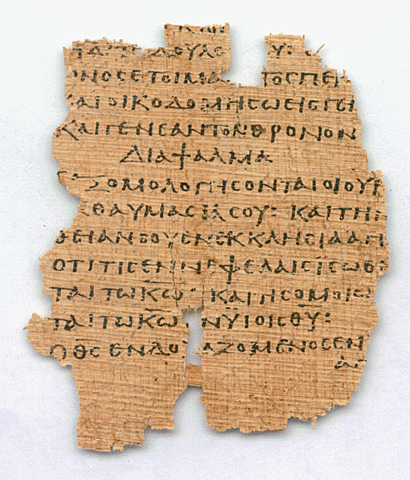 ΔΟΥΛΩ Υ:
ΝΟϹ ΕΤΟΙΜΑ ΤΟ ϹΠΕΡ
ΚΑΙ ΟΙΚΟΔΟΜΗϹΩ ΕΙϹ ΓΕΝ
ΚΑΙ ΓΕΝΕΑΝ ΤΟΝ ΘΡΟΝΟΝ
ΔΙΑΨΑΛΜΑ
ΕΞΟΜΟΛΟΓΗϹΟΝΤΑΙ ΟΙ ΟΥΡ
ΘΑΥΜΑϹΙΑ ϹΟΥ: ΚΑΙ ΤΗΝ
ΘΕΙΑΝ ϹΟΥ ΕΝ ΕΚΚΛΗϹΙΑ ΑΓΙ
ΟΤΙ ΤΙϹ ΕΝ Ν ΦΕΛΑΙϹ ΙϹΩΘΗ
ΤΑΙ ΤΩ Κ̅Ω̅· ΚΑΙ ΤΙϹ ΟΜΟΙΩ
ΤΑΙ ΤΩ Κ̅Ω̅ Ν ΥΪΟΙϹ Θ̅Υ̅:
Ο Θ̅Ϲ̅ ΕΝΔΟ ΑΖΟΜΕΝΟϹ ΕΝ